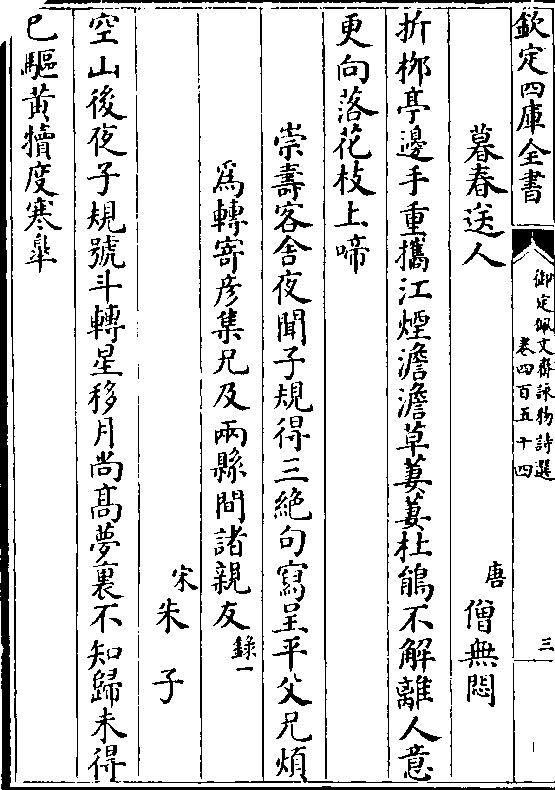 欽定四庫全書
御定佩文齋詠物詩選
卷四百五十四
三
暮春送人
唐
僧無悶
折桞亭邊手重攜江煙澹澹草萋萋杜鵑不解離人意
更向落花枝上啼
崇壽客舍夜聞子規得三絕句寫呈平父兄煩
爲轉寄彦集兄及兩縣間諸親友
錄一
宋
朱子
空山後夜子規號斗轉星移月尚髙夢裏不知歸未得
已驅黄犢度寒臯